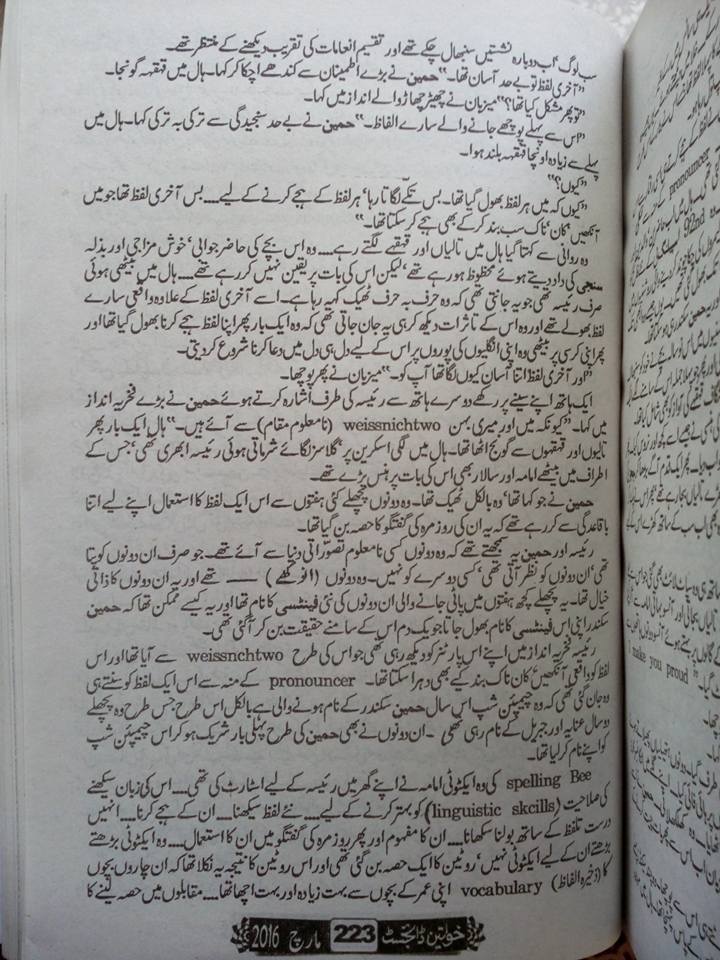 سب لوگ اب دوبارہ نشستیں سنبھال چکے تھے اور تقسیم انعامات کی تقریب دیکھنے کے منتظر تھے۔
"آخری لفظ تو بے حد آسان تھا۔" حمین نے بڑے اطمینان سے کندھے اچکا کر کہا۔ ہال میں قہقہہ گونجا۔
"تو پھر مشکل کیا تھا؟" میزبان نے چھیڑ چھاڑ والے انداز میں کہا۔
"اس سے پہلے پوچھے جانے والے سارے الفاظ۔" حمین نے بے حد سنجیدگی سے ترکی بہ ترکی کہا۔ ہال میں
پہلے سے زیادہ اونچا قہقہہ بلند ہوا۔
"کیوں؟"
"کیوں کہ میں ہر لفظ بھول گیا تھا۔ بس تکے لگاتا رہا' ہر لفظ کے ہجے کرنے کے لیے.... بس آخری لفظ تھا جو میں
آنکھیں' کان' ناک سب بند کر کے بھی ہجے کر سکتا تھا۔"
وہ روانی سے کہتا گیا ہال میں تالیاں اور قہقہے لگتے رہے.... وہ اس بچے کی حاضر جوابی' خوش مزاجی اور بذلہ
سنجی کی داد دیتے ہوئے محظوظ ہو رہے تھے' لیکن اس کی بات پر یقین نہیں کر رہے تھے.... ہال میں بیٹھی ہوئی
صرف رئیسہ تھی جو یہ جانتی تھی کہ وہ حرف بہ حرف ٹھیک کہہ رہا ہے۔ اسے آخری لفظ کے علاوہ واقعی سارے
لفظ بھولے تھے اور وہ اس کے تاثرات دیکھ کر ہی یہ جان جاتی تھی کہ وہ ایک بار پھر اپنا لفظ ہجے کرنا بھول گیا تھا اور
پھر اپنی کرسی پر بیٹھی وہ اپنی انگلیوں کی پوروں پر اس کے لیے دل ہی دل میں دعا کرنا شروع کر دیتی۔
"اور آخری لفظ اتنا آسان کیوں لگا تھا آپ کو۔" میزبان نے پھر پوچھا۔
ایک ہاتھ اپنے سینے پر رکھے دوسرے ہاتھ سے رئیسہ کی طرف اشارہ کرتے ہوئے حمین نے بڑے فخریہ انداز
میں کہا۔ "کیونکہ میں اور میری بہن weissnichtwo (نامعلوم مقام) سے آئے ہیں۔" ہال ایک بار پھر
تالیوں اور قہقہوں سے گونج اٹھا تھا۔ ہال میں لگی اسکرین پر' گلاسز لگائے شرماتی ہوئی رئیسہ ابھری تھی' جس کے
اطراف میں بیٹھے امامہ اور سالار بھی اس کی بات پر ہنس پڑے تھے۔
حمین نے جو کہا تھا' وہ بالکل ٹھیک تھا۔ وہ دونوں پچھلے کئی ہفتوں سے اس ایک لفظ کا استعمال اپنے لیے اتنا
باقاعدگی سے کر رہے تھے کہ یہ ان کی روز مرہ کی گفتگو کا حصہ بن گیا تھا۔
رئیسہ اور حمین یہ سمجھتے تھے کہ وہ دونوں کسی نامعلوم تصوراتی دنیا سے آئے تھے۔ جو صرف ان دونوں کو پتا
تھی' ان دونوں کو نظر آتی تھی' کسی دوسرے کو نہیں۔ وہ دونوں (انوکھے) —— تھے اور یہ ان دونوں کا ذاتی
خیال تھا۔ یہ پچھلے کچھ ہفتوں میں پائی جانے والی ان دونوں کی نئی فینٹسی کا نام تھا اور یہ کیسے ممکن تھا کہ حمین
سکندر اپنی اس فینٹسی کا نام بھول جاتا جو یک دم اس کے سامنے حقیقت بن کر آگئی تھی۔
رئیسہ فخریہ انداز میں اپنے اس پارٹنر کو دیکھ رہی تھی جو اس کی طرح weissnchtwo سے آیا تھا اور اس
لفظ کو واقعی آنکھیں' کان ناک بند کیے بھی دہرا سکتا تھا۔ pronouncer کے منہ سے اس ایک لفظ کو سنتے ہی
وہ جان گئی تھی کہ وہ چیمپئن شپ اس سال حمین سکندر کے نام ہونے والی ہے بالکل اس طرح جس طرح وہ پچھلے
دو سال عنایہ اور جبریل کے نام رہی تھی۔ ان دونوں نے بھی حمین کی طرح پہلی بار شریک ہو کر اس چیمپئن شپ
کو اپنے نام کر لیا تھا۔
spelling Bee کی وہ ایکٹوٹی امامہ نے اپنے گھر میں رئیسہ کے لیے اسٹارٹ کی تھی.... اس کی زبان سیکھنے
کی صلاحیت (linguistic skcills) کو بہتر کرنے کے لیے.... نئے لفظ سیکھنا.... ان کے ہجے کرنا.... انہیں
درست تلفظ کے ساتھ بولنا سکھانا.... ان کا مفہوم اور پھر روز مرہ کی گفتگو میں ان کا استعمال.... وہ ایکٹوٹی بڑھتے
بڑھتے ان کے لیے ایکٹوٹی نہیں' روٹین کا ایک حصہ بن گئی تھی اور اس روٹین کا نتیجہ یہ نکلا تھا کہ ان چاروں بچوں
کا (ذخیرہ الفاظ) vocabulary اپنی عمر کے بچوں سے بہت زیادہ اور بہت اچھا تھا.... مقابلوں میں حصہ لینے کا
خواتین ڈائجسٹ 223 مارچ 2016
pronouncer
92nd
i make you proud"